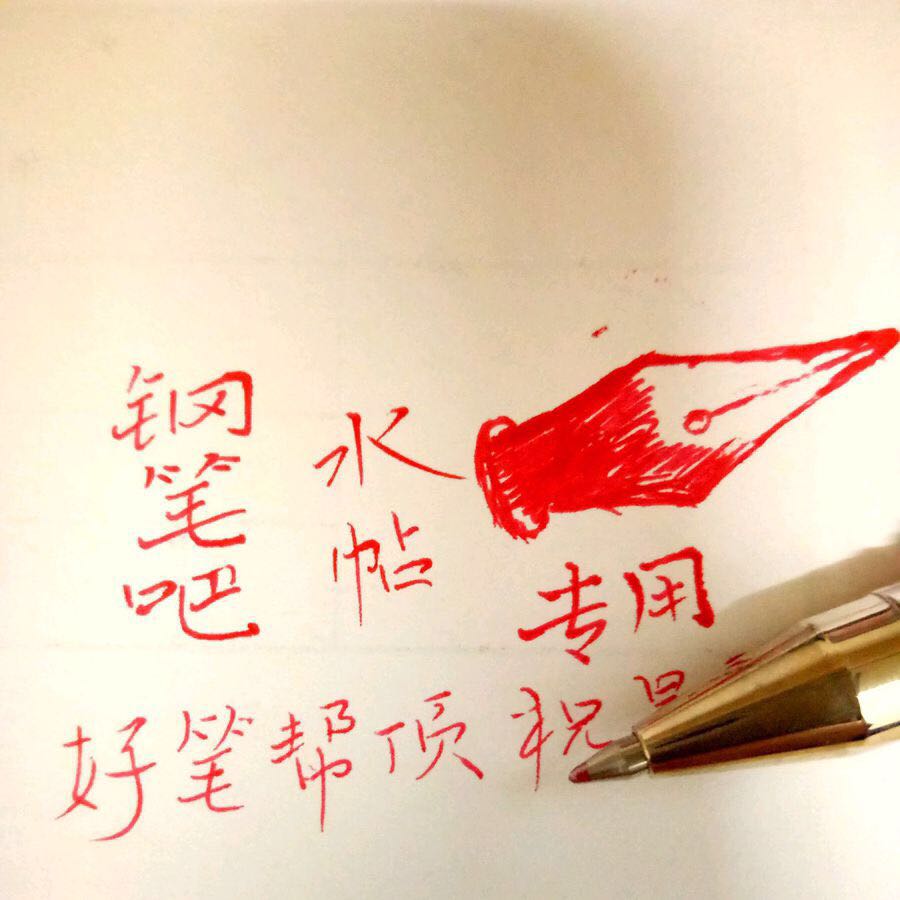 钢笔吧
水帖
专用
好笔帮顶祝